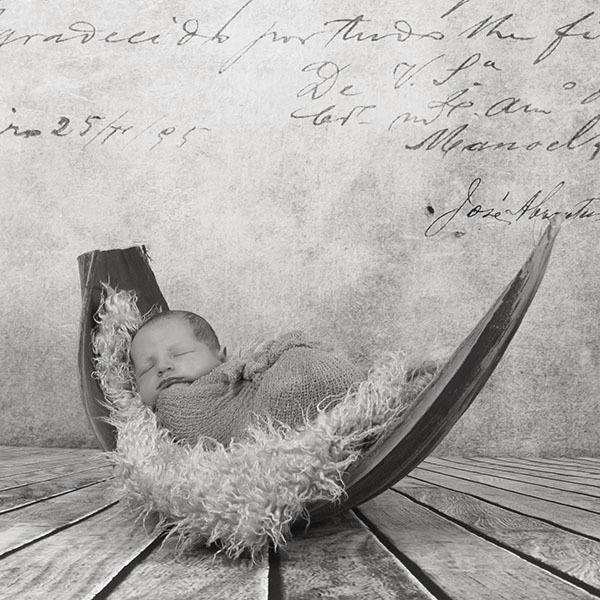 agradecido por tudo the fi
De V. S.ª
Cr.º m.to Am.º
ro 25/11/95
Manoel
José